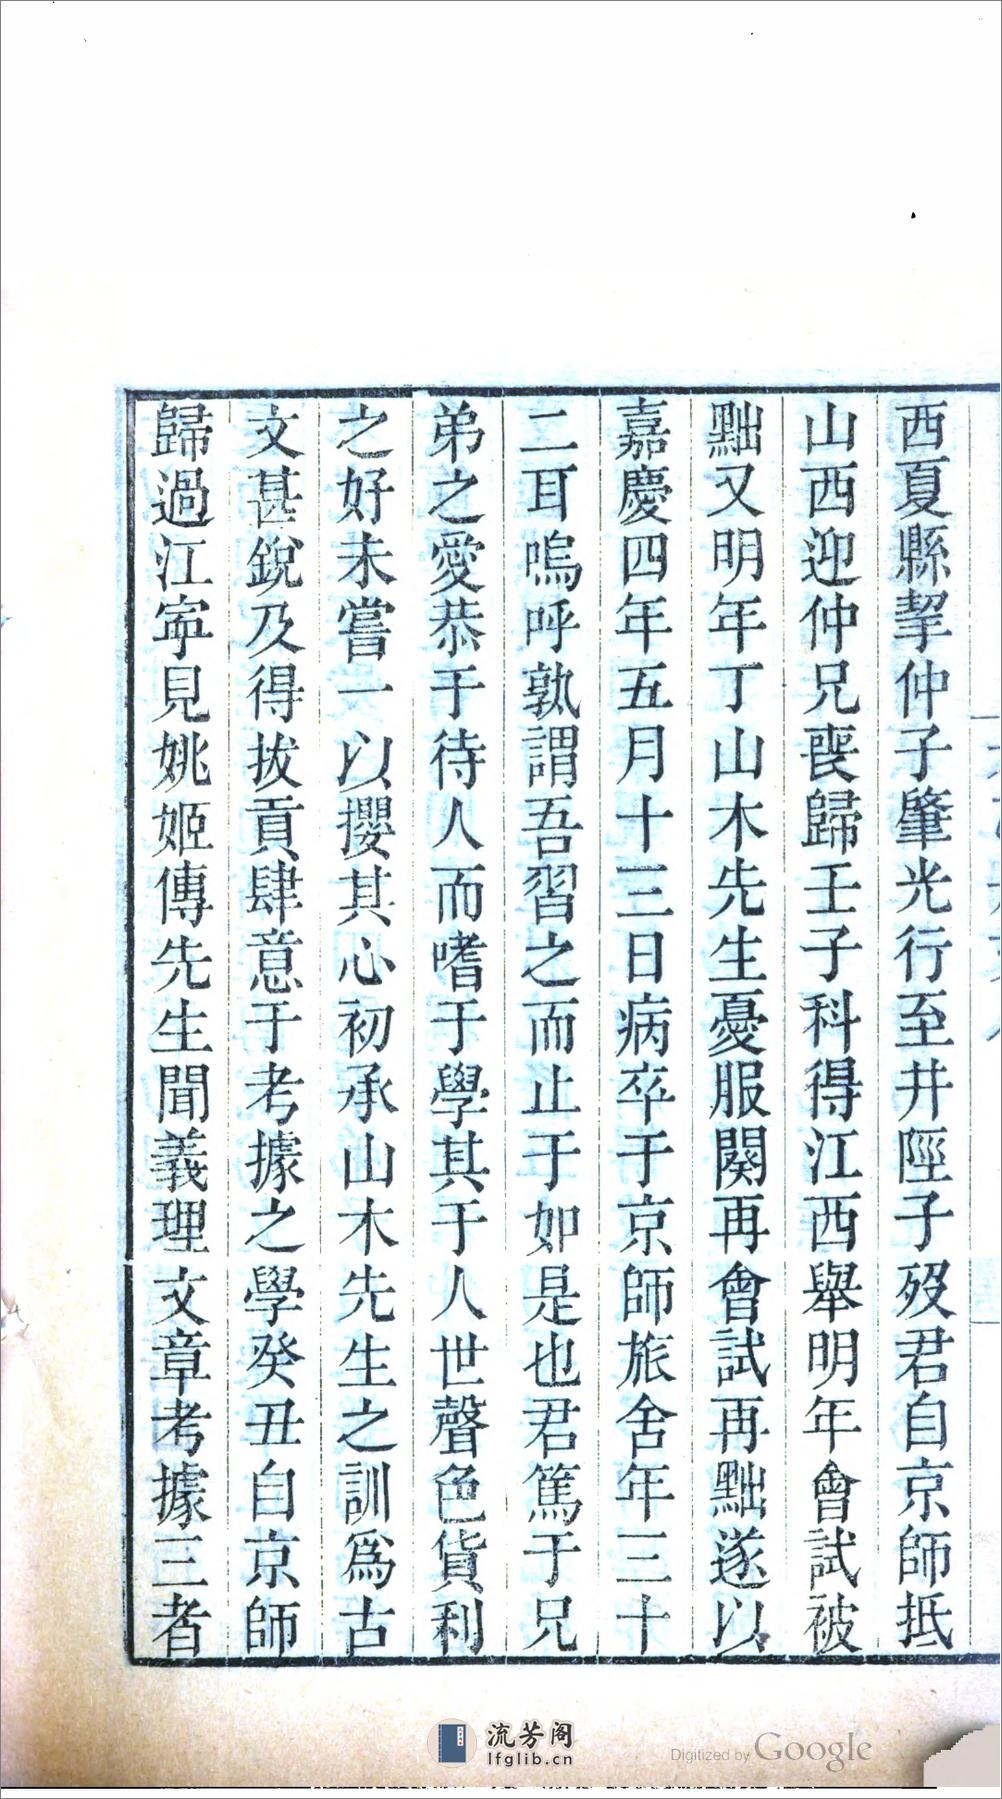 西夏縣挈仲子肇光行至井陘子歿君自京師抵
山西迎仲兄喪歸壬子科得江西舉明年會試被
黜又明年丁山木先生憂服闋再會試再黜遂以
嘉慶四年五月十三日病卒于京師旅舍年三十
二耳嗚呼孰謂吾習之而止于如是也君篤于兄
弟之愛恭于待人而嗜于學其于人世聲色貨利
之好未嘗一以攖其心初承山木先生之訓爲古
文甚銳及得拔貢肆意于考據之學癸丑自京師
歸過江寧見姚姬傳先生聞義理文章考據三者
流芳阁
lfglib.cn
Digitized by Google